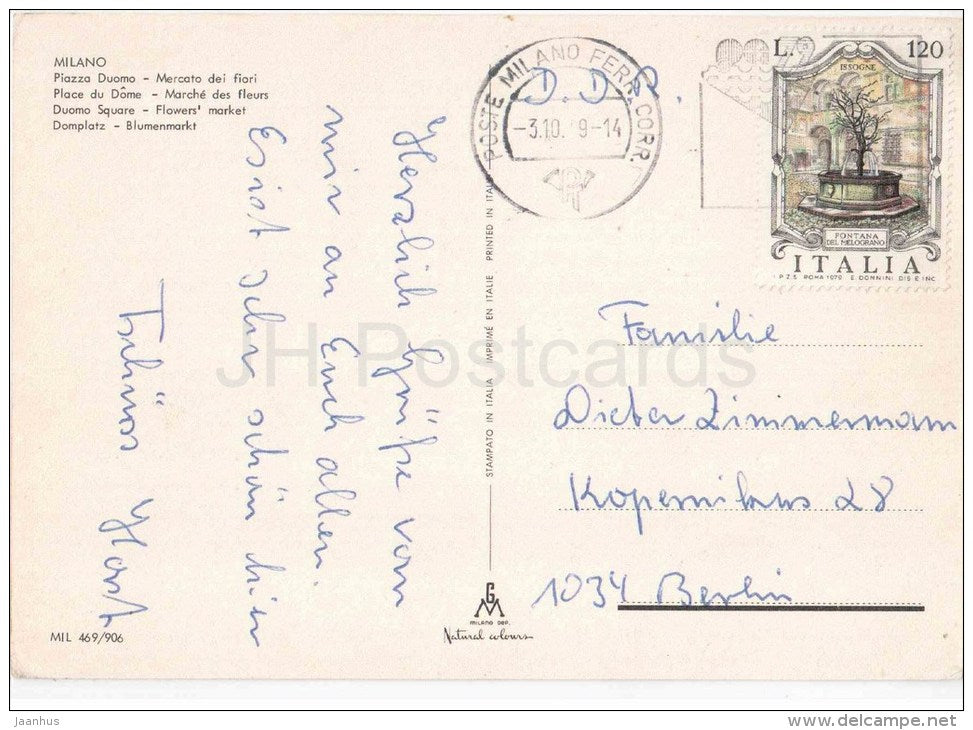 MILANO
Piazza Duomo – Mercato dei fiori
Place du Dôme – Marché des fleurs
Duomo Square – Flowers' market
Domplatz – Blumenmarkt
Herzlich Grüße von
mir an Euch allen.
Es ist sehr schön hier
Tschüss Horst
MIL 469/906
STAMPATO IN ITALIA IMPRIMÉ EN ITALIE PRINTED IN ITALY
GM
MILANO DEP.
Natural colours
POSTE MILANO FERR. CORR.
–3.10. 9–14
D.D.R.
L. 120
ISSOGNE
FONTANA
DEL MELOGRANO
ITALIA
I.P.Z.S. ROMA 1979 E. DONNINI DIS. E INC.
Familie
Dieter Zimmermann
Kopernikus 28
1034 Berlin
JH Postcards
Jaanhus
www.delcampe.net